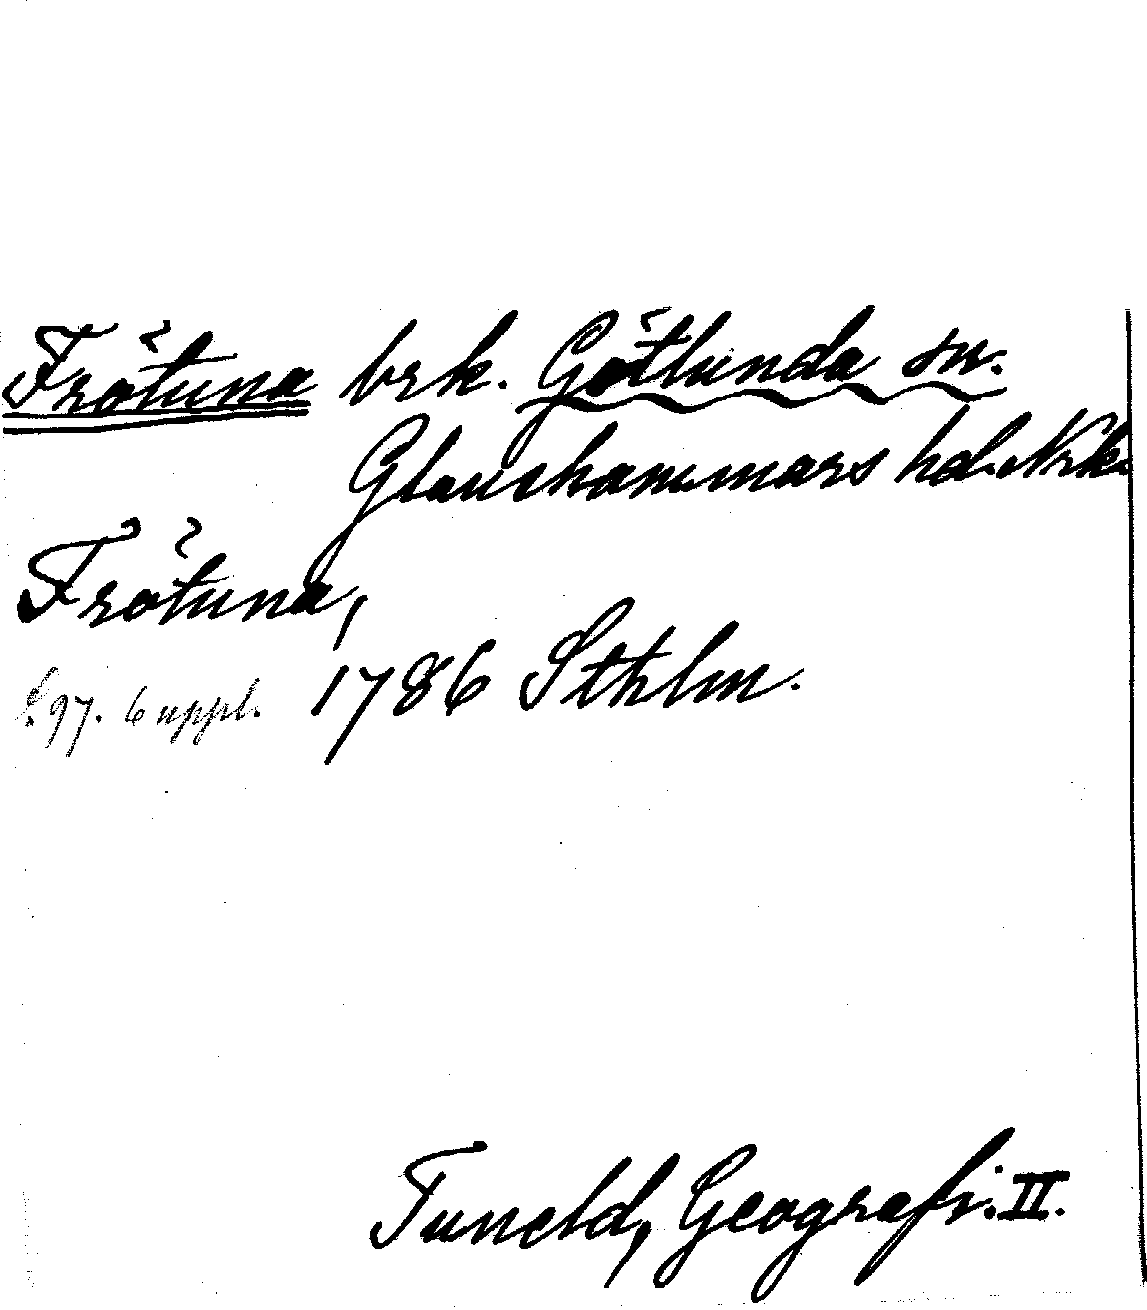 Frötuna brk. Götlunda sn.
Glanshammars hd. Nrk.
Frötuna,
s. 97. 6 uppl. 1786 Sthlm.
Tuneld, Geografi. II.